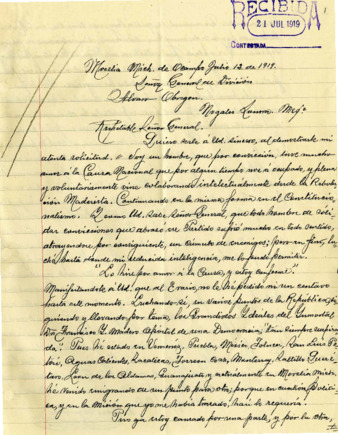 RECIBIDA
21 JUL 1919
CONTESTADA
Morelia Mich. de Ocampo Julio 13 de 1919.
Señor General de División
Alvaro Obregon.
Nogales Sonora. Mejo
Respetable Señor General.
Quiero serle á Ud. sincero, al demostrarle mi
atenta solicitud. Soy un hombre, que por convicción, tuve mucho
amor á la Causa Nacional que por algun tiempo nos a ocupado, y plena
y voluntariamente vine colaborando intelectualmente desde la Revolu-
ción Maderista. Continuando en la misma forma en el Constitucio-
nalismo. Y como Ud. sabe Señor General, que todo hombre de sóli-
das convicciones que abraza un Partido sufre mucho en todo sentido,
atrayendose por consiguiente, un cúmulo de enemigos; pero en fin, lu-
ché hasta donde mi reducida inteligencia, me lo pudo permitir.
"Lo hice por amor á la Causa, y estoy conforme."
Manifestandole á Ud. que al Erario no le hé pedido ni un centavo
hasta este momento. Luchando sí, en varios puntos de la República, si-
guiendo y llevando por lema, los Grandiosos Ideales del Inmortal
Don Francisco I. Madero Apóstol de una Democracia, tan siempre suspira-
da. Pues hé estado en Veracruz, Puebla, Mexico, Toluca, San Luis Po-
tosí, Aguas Calientes, Zacatecas, Torreon Coah, Monterrey, Saltillo, Queré-
taro, Leon de los Aldamas, Guanajuato y actualmente en Morelia Mich.
hé venido emigrando de un punto para otro, porque en cuestion Políti-
ca, y en la Misión que yo me había trazado, hací se requería.
Pero ya estoy cansado por una parte, y por la otra,